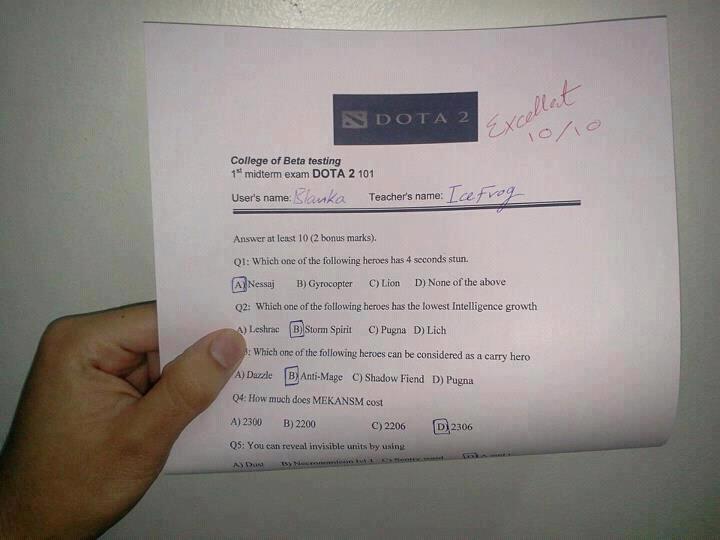 DOTA 2
Excellent
10/10
College of Beta testing
1st midterm exam DOTA 2 101
User's name: Blanka Teacher's name: IceFrog
Answer at least 10 (2 bonus marks).
Q1: Which one of the following heroes has 4 seconds stun.
A) Nessaj B) Gyrocopter C) Lion D) None of the above
Q2: Which one of the following heroes has the lowest Intelligence growth
A) Leshrac B) Storm Spirit C) Pugna D) Lich
3: Which one of the following heroes can be considered as a carry hero
A) Dazzle B) Anti-Mage C) Shadow Fiend D) Pugna
Q4: How much does MEKANSM cost
A) 2300 B) 2200 C) 2206 D) 2306
Q5: You can reveal invisible units by using
A) Dust B) Necronomicon lvl 1 C) Sentry ward